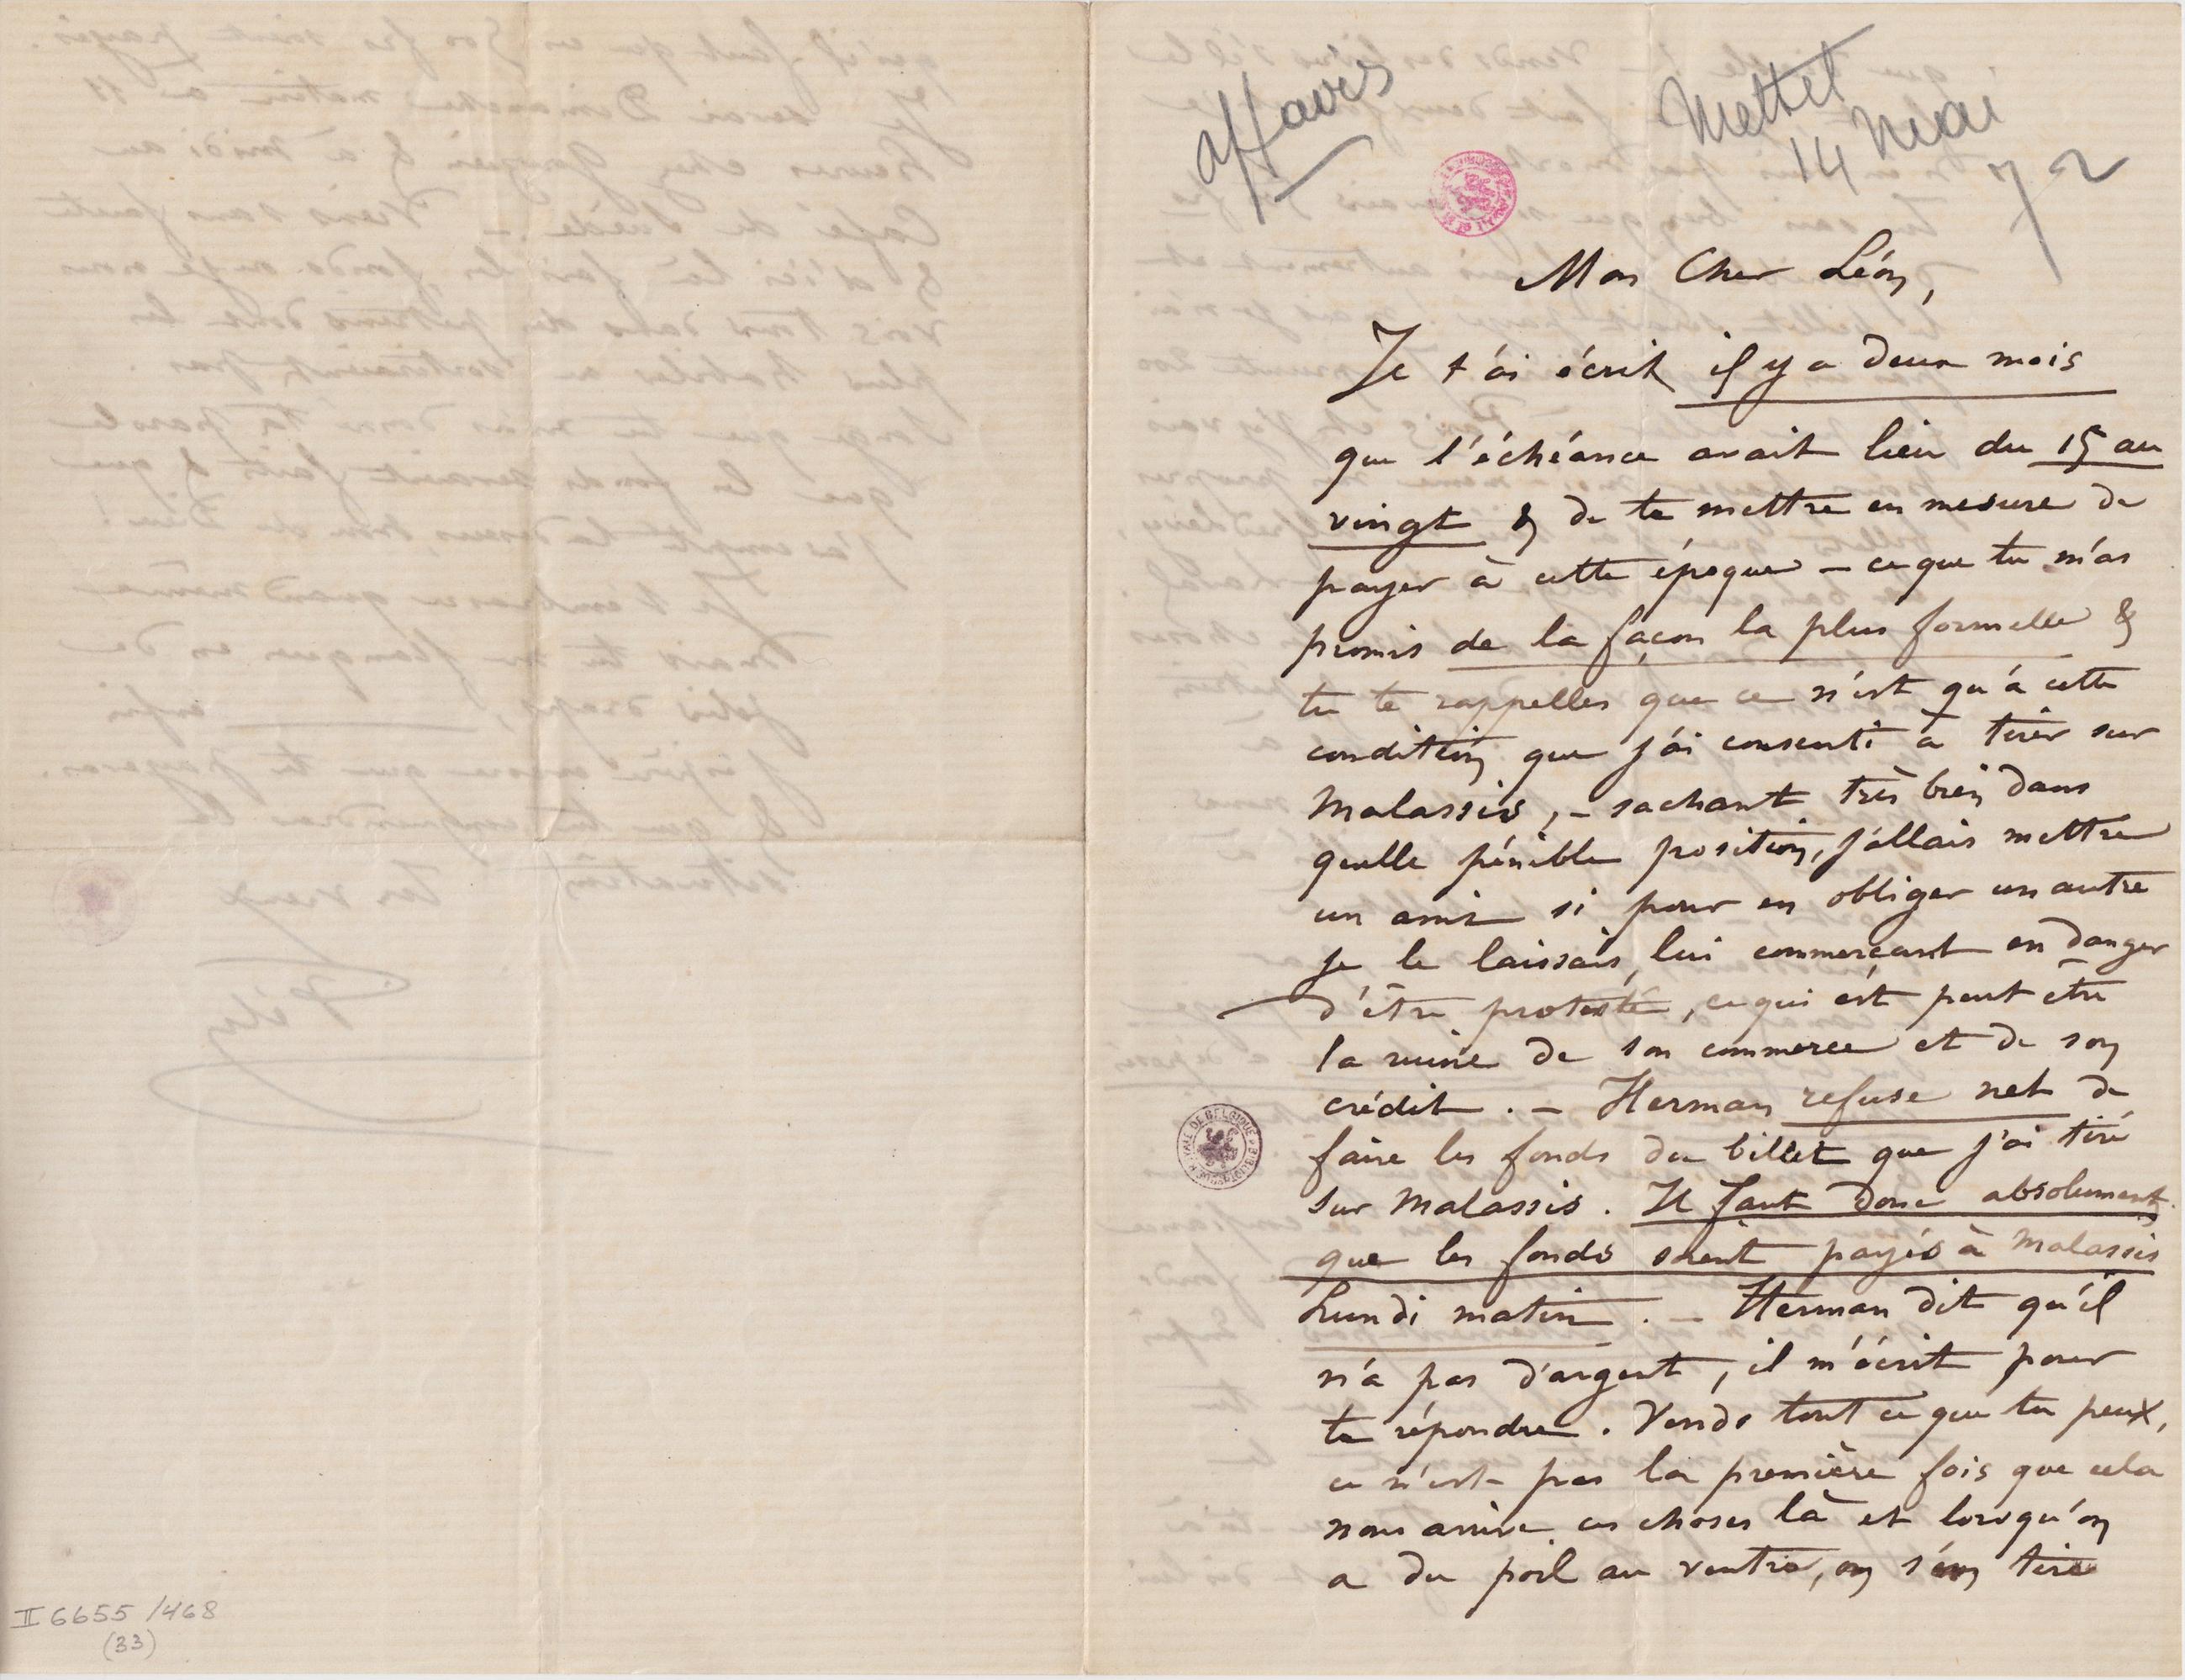 affaires
Mettet
14 mai
72
Mon Cher Léon,
Je t'ai écrit il y a deux mois
que l'échéance avait lieu du 15 au
vingt & de te mettre en mesure de
payer à cette époque – ce que tu m'as
promis de la façon la plus formelle &
tu te rappelles que ce n'est qu'à cette
condition que j'ai consenti à tirer sur
Malassis, – sachant très bien dans
quelle pénible position, j'allais mettre
un ami si pour en obliger un autre
je le laissais, lui commerçant en danger
d'être protesté, ce qui est peut être
la ruine de son commerce et de son
crédit. – Herman refuse net de
faire les fonds du billet que j'ai tiré
sur Malassis. Il faut donc absolument
que les fonds soient payés à Malassis
Lundi matin. – Herman dit qu'il
n'a pas d'argent, il m'écrit pour
te répondre. Vends tout ce que tu peux,
ce n'est pas la première fois que cela
nous arrive ces choses là et lorsqu'on
a du poil au ventre, on s'en tire
II 6655 /468
(33)